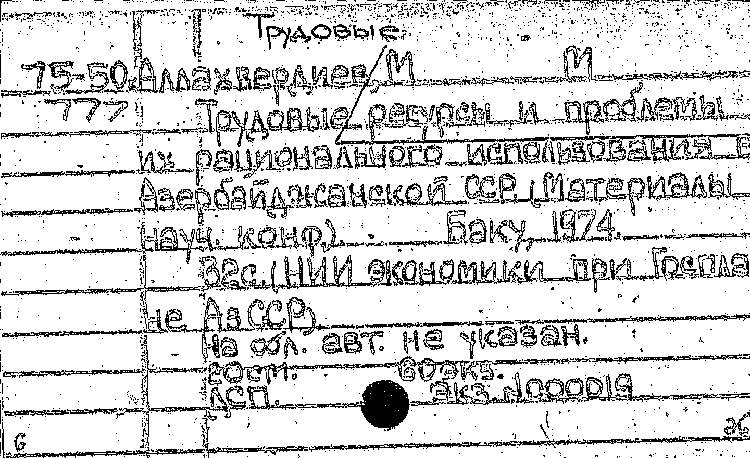 Трудовые
75-50. Аллахвердиев, М М
777 Трудовые ресурсы и проблемы
их рационального использования в
Азербайджанской ССР. (Материалы
науч. конф.). Баку, 1974.
32с. (НИИ экономики при Госпла
не АзССР).
На обл. авт. не указан.
сост. 60экз.
ДСП. Экз. N000019
6